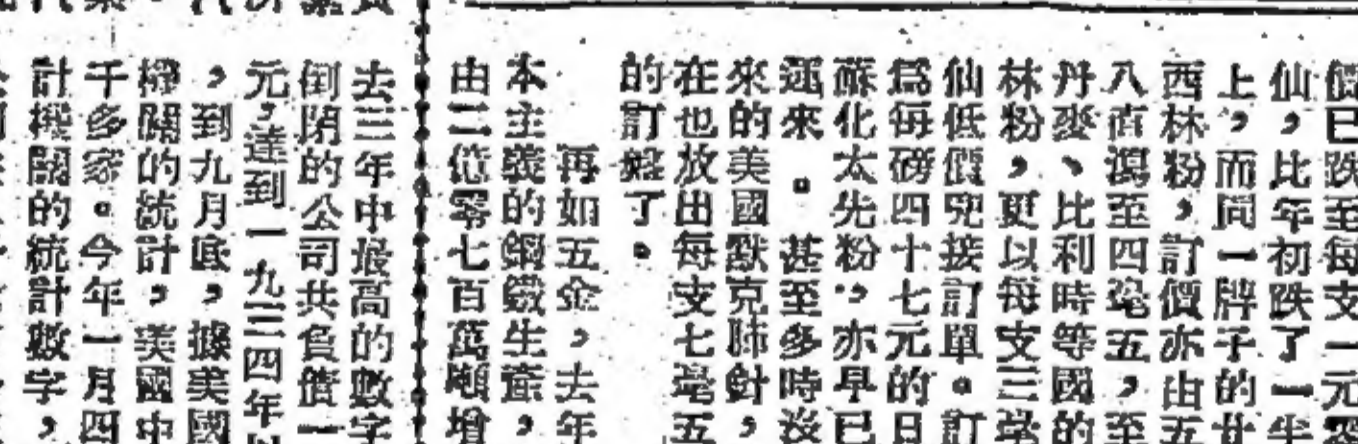 價已跌至每支一元
仙，比年初跌了一半
上，而同一牌子的廿
西林粉，訂價亦由五
八直瀉至四毫五，至
丹麥、比利時等國的
林粉，更以每支三毫
仙低價兜接訂單。訂
爲每磅四十七元的日
蘇化太先粉，亦早已
運來。甚至多時沒
來的美國默克肺針，
在也放出每支七毫五
的訂盤了。
再如五金，去年
本主義的鋼鐵生產，
由二億零七百萬噸增
去三年中最高的數字
倒閉的公司共負債一
元，達到一九三四年以
，到九月底，據美國
機關的統計，美國中
千多家。今年一月四
計機關的統計數字，